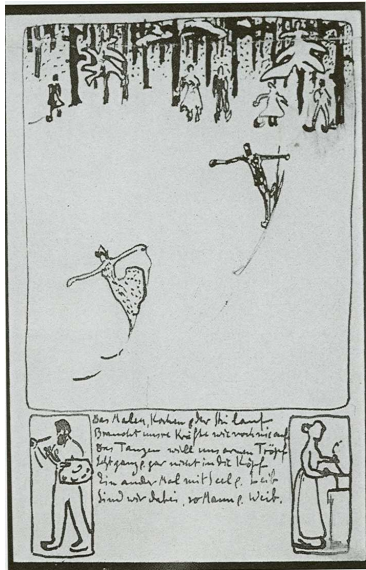 Das Malen, Kochen, der Ski lauf
Braucht unsre Kräfte wie noch nie auf
Das Tanzen will uns armen Tröpf
Jetzt ganz gar nicht in die Köpf
Ein ander Mal mit Seel u. Leib
Sind wir dabei, so Mann u. Weib.